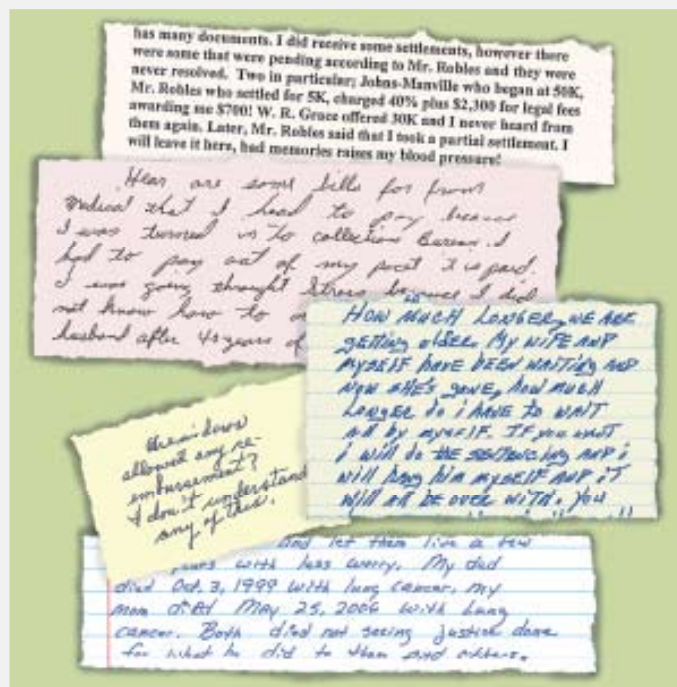 has many documents. I did receive some settlements, however there
were some that were pending according to Mr. Robles and they were
never resolved. Two in particular; Johns-Manville who began at 50K,
Mr. Robles who settled for 5K, charged 40% plus $2,300 for legal fees
awarding me $700! W. R. Grace offered 30K and I never heard from
them again. Later, Mr. Robles said that I took a partial settlement. I
will leave it here, bad memories raises my blood pressure!
Hear are some bills for from
medical that I had to pay because
I was turned in to collection Bureau. I
had to pay out of my pocet it is paid.
I was going throught stress because I did
not know how to
husband after 40 years of
HOW MUCH LONGER, WE ARE
getting older MY WIFE AND
MYSELF HAVE BEEN WAITING AND
NOW SHE'S GONE, HOW MUCH
LONGER do i HAVE TO WAIT
All BY MYSELF. IF YOU WANT
i will do THE SENTENCING AND i
will hang HIM MYSELF AND iT
will All BE OVER WITH. YOU
allowed any re-
embursement?
I don't understand
any of this.
and let them live a few
years with less worry. My dad
died Oct. 3, 1999 with lung cancer, my
mom died May 25, 2006 with lung
cancer. Both died not seeing justice done
for what he did to them and others.